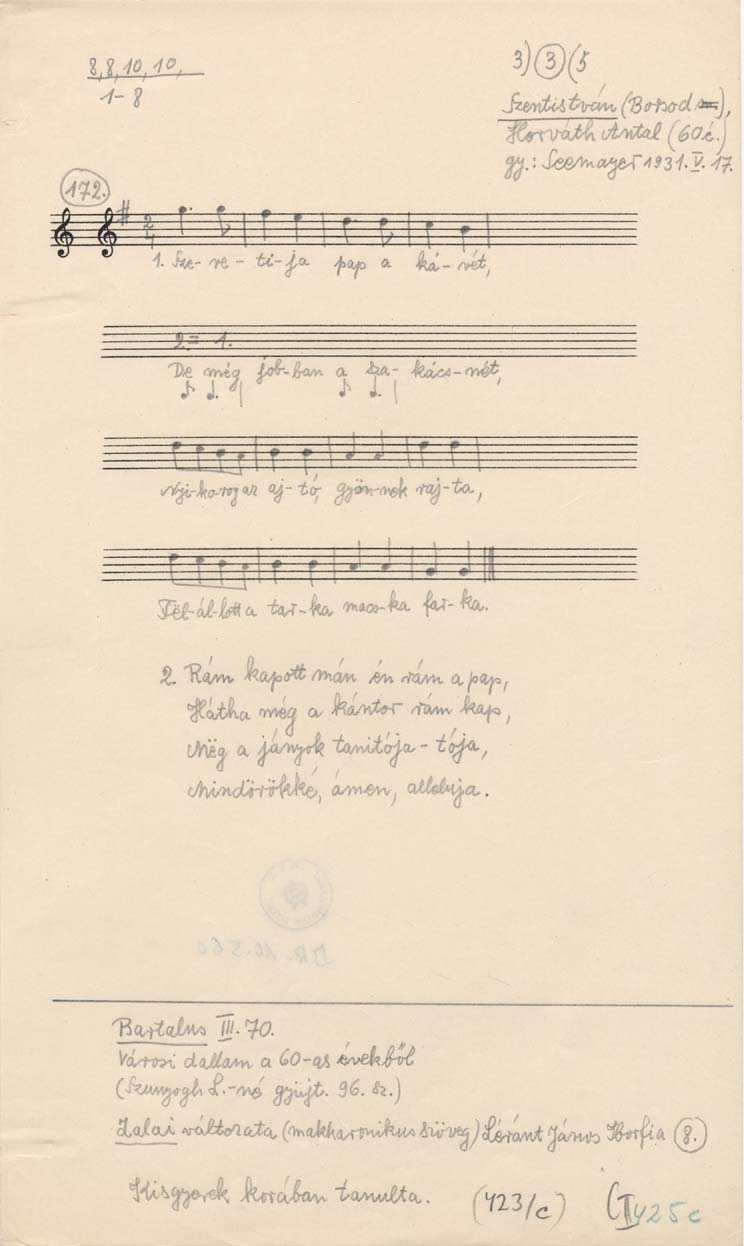 8, 8, 10, 10,
1-8
3) (3) (5
Szentistván (Borsod),
Horváth Antal (60 é.)
gy.: Seemayer 1931. V. 17.
172.
2/4
1. Sze-re-ti-ja pap a ká-vét,
2. = 1.
De még job-ban a sza-kács-nét,
Nyi-ko-rog az aj-tó, gyön-nek raj-ta,
Fël-ál-lott a tar-ka macs-ka far-ka.
2. Rám kapott mán én rám a pap,
Hátha még a kántor rám kap,
Mëg a jányok tanitója-tója,
Mindörökké, ámen, alleluja.
DR. 10.560
Bartalus III. 70.
Városi dallam a 60-as évekből
(Szunyogh L.-né gyüjt. 96. sz.)
Zalai változata (makharonikus szöveg) Lóránt János Horfia (8.)
Kisgyerek korában tanulta.
(423/c)
(I 425 c